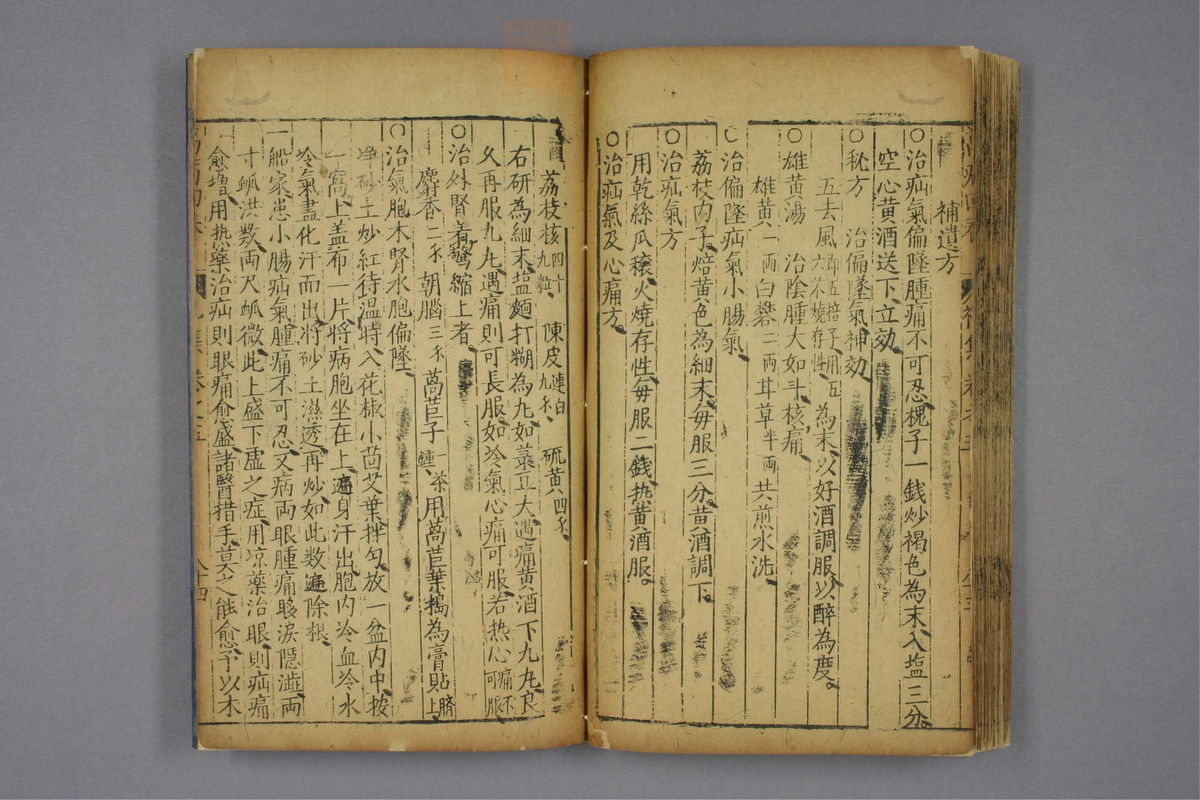 補遺方
○治疝氣偏墜腫痛不可忍槐子一錢炒褐色為末入塩三分
空心黄酒送下立効
○秘方 治偏墜氣神効
五去風即五掊子用五六个燒存性為末以好酒調服以醉為度
○雄黄湯 治陰腫大如斗核痛
雄黄一両白礬二両甘草半両共煎水洗
○治偏墜疝氣小腸氣
荔枝内子焙黄色為細末每服三分黄酒調下
○治疝氣方
用乾絲瓜穰火燒存性每服二錢热黄酒服
○治疝氣及心痛方
荔枝核四十九粒 陳皮連白九錢 硫黄四錢
右研為細末塩麵打糊為丸如菉豆大遇痛黄酒下九丸良
久再服九丸遇痛則可長服如冷氣心痛可服若热心痛不可服
○治外腎着驚縮上者
麝香二分 朝腦三分 萵苣子一茶鍾用萵苣葉搗為膏貼臍上
○治氣胞木腎水胞偏墜
净砂土炒紅待温時入花椒小茴艾葉拌匀放一盆内中按
一窩上盖布一片將病胞坐在上遍身汗出胞内冷血冷水
冷氣盡化汗而出將砂土濕透再炒如此数遍除根
一船家患小腸疝氣腫痛不可忍又病両眼腫痛眵淚隱澁両
寸𧖴洪数両尺𧖴微此上盛下虛之症用凉藥治眼則疝痛
愈增用热藥治疝則眼痛愈盛諸醫措手莫之能愈予以木
八十四